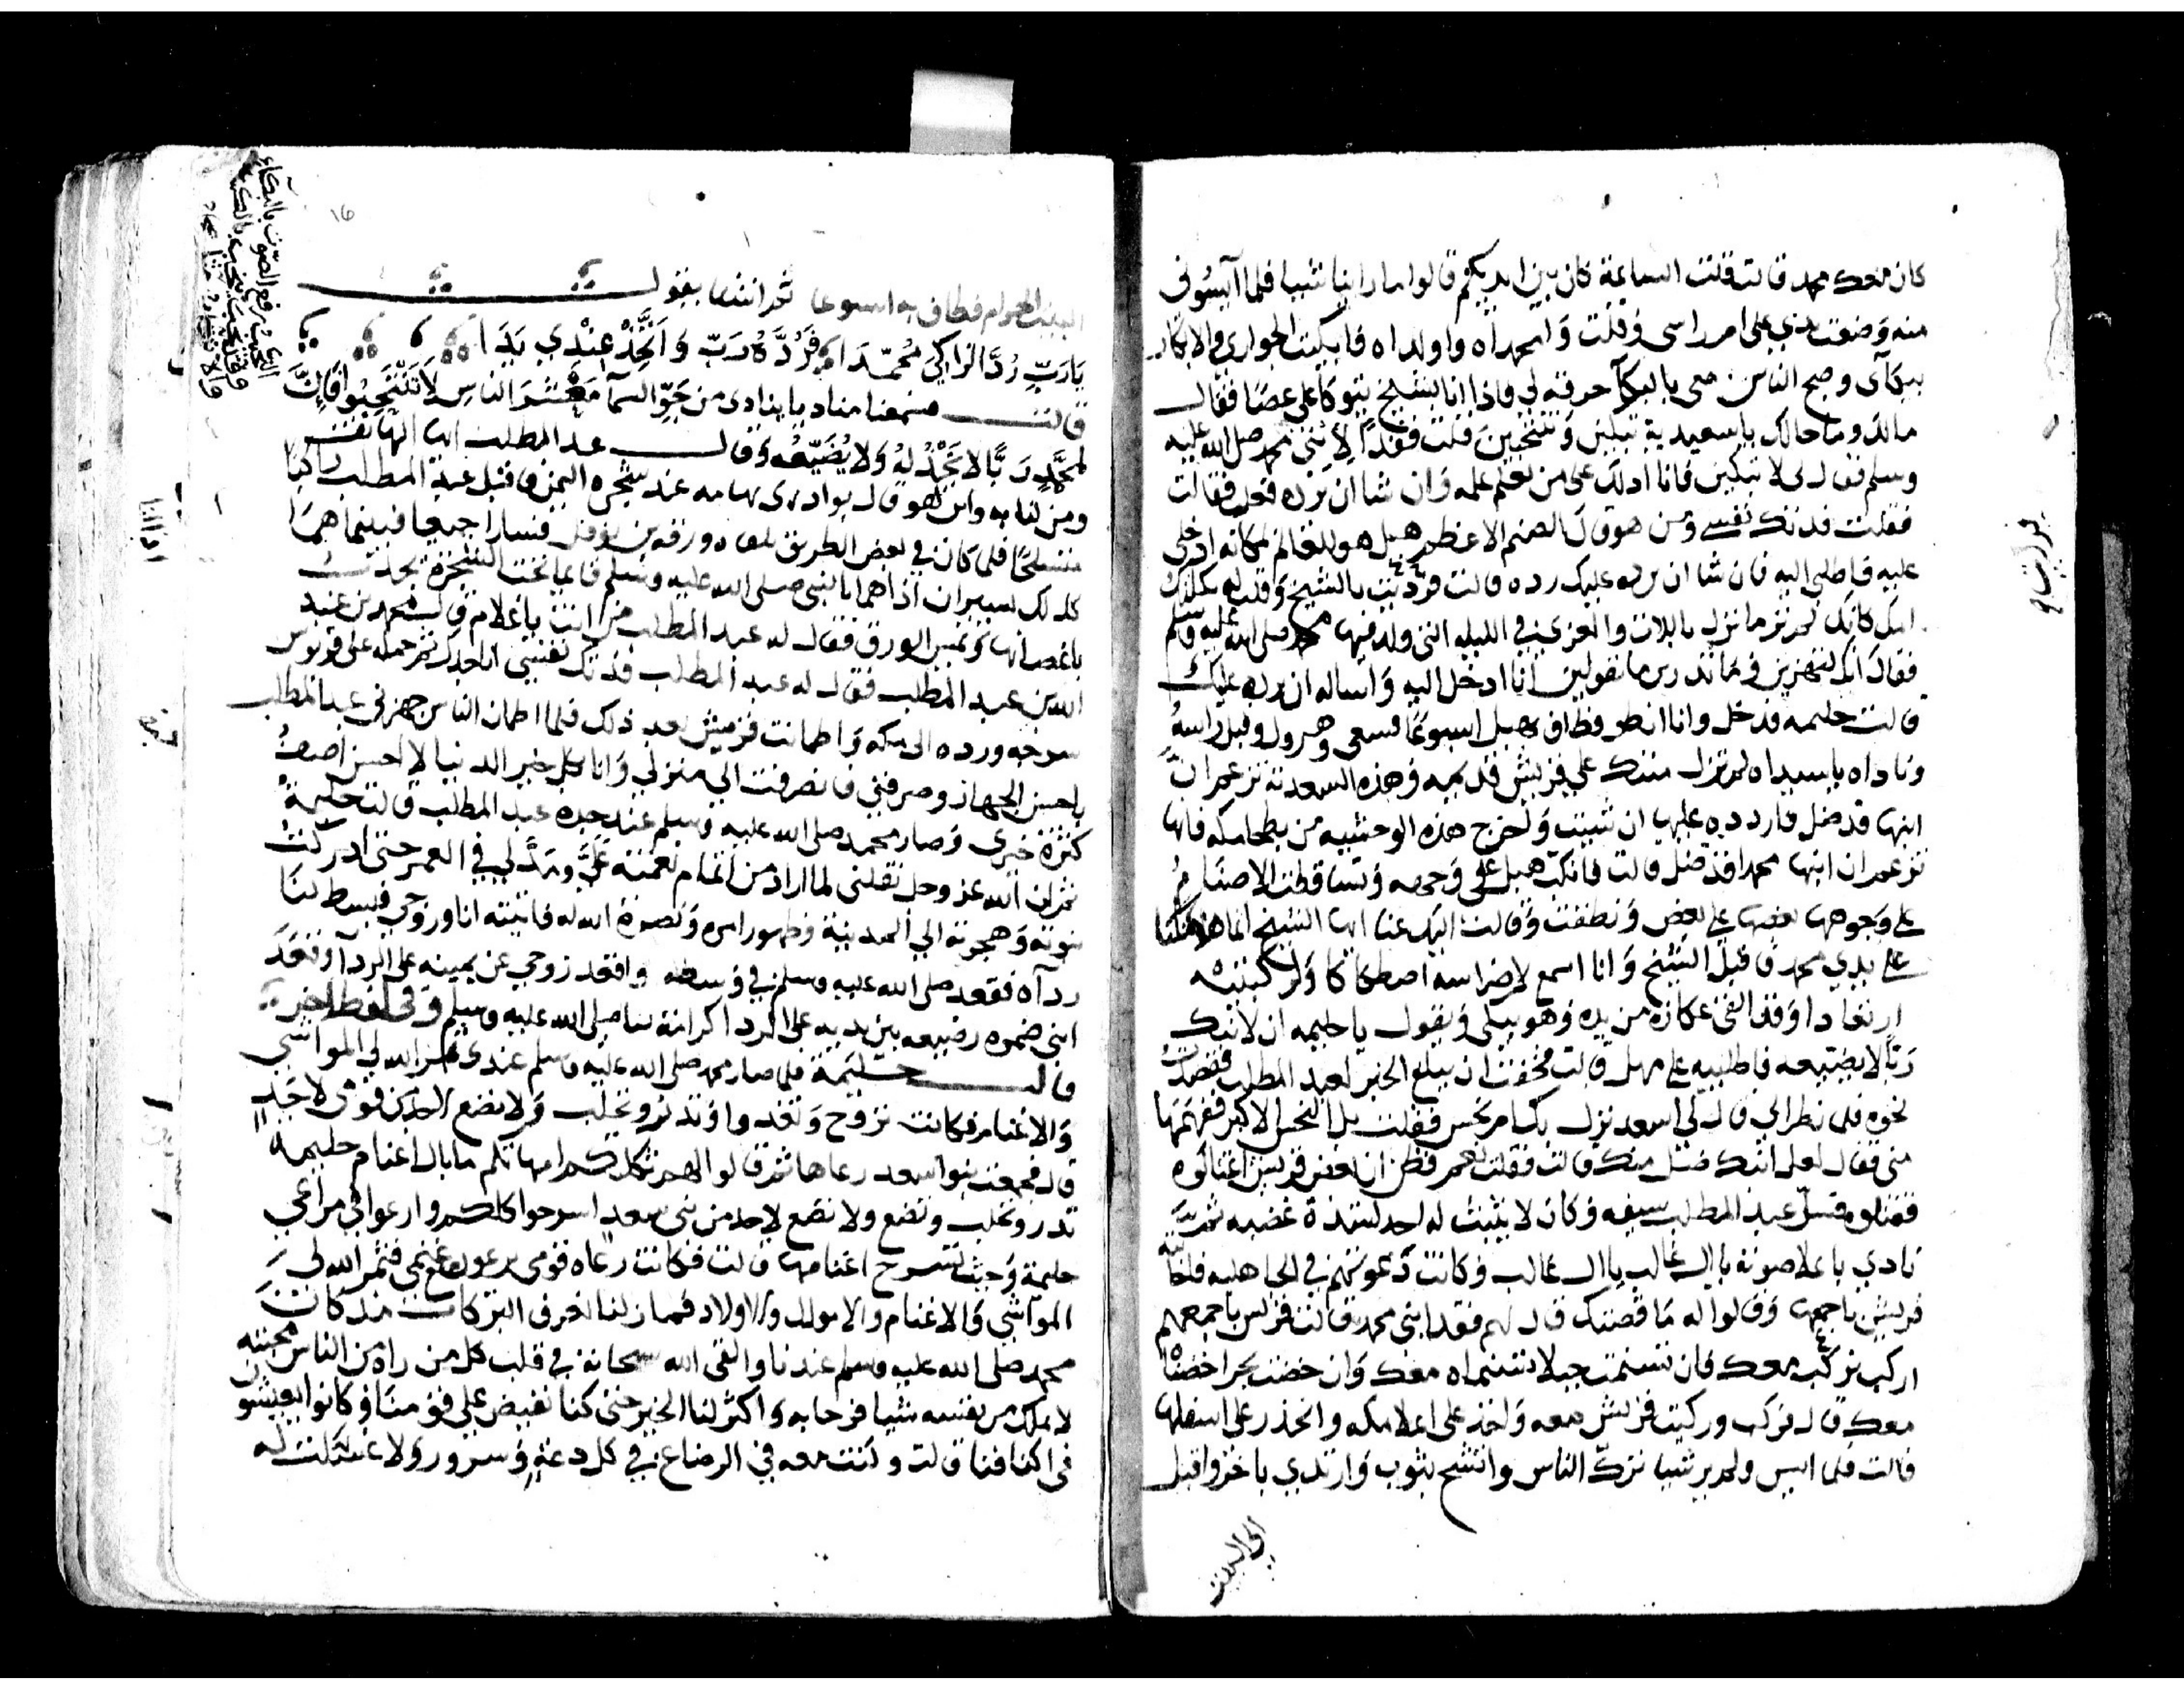 كان معك محمد قالت قلت الساعة كان بين ايديكم قالوا ما راينا شيا فلما آيسوني
منه وضعت يدي على ام راسي وقلت وامحمداه واولداه فابكيت الجواري والابكار
ببكآى وضج الناس معي بالبكآ حرقة لي فاذا انا بشيخ يتوكأ على عصا فقال
مالك وما حالك يا سعدية تبكين وتنتحبين قلت فقدا لابني محمد صلى الله عليه
وسلم فقال لى لا تبكين فانا ادلك على من يعلم علمه وان شا ان يرده فعل فقالت
فقلت فدتك نفسي ومن هو قال الصنم الاعظم هبل هو العالم بمكانه ادخلى
عليه فاطلبي اليه فان شا ان يرده عليك رده قالت فزبرت بالشيخ وقلت له ثكلتك
امك كانك لم تر ما نزل باللات والعزى في الليلة التي ولد فيها محمد صلى الله عليه وسلم
فقال انك لتهزين وما تدرين ما تقولين انا ادخل اليه واساله ان يرده عليك
قالت حليمه فدخل وانا انظر فطاف بهبل اسبوعا فسعى وهرول وقبل راسه
وناداه يا سيداه لم تزل منتك على قريش قديمه وهذه السعدية تزعم ان
ابنها قد ضل فاردده عليها ان شيت واخرج هذه الوحشيه من بطحا مكه فانها
تزعم ان ابنها محمدا قد ضل قالت فانكب هبل على وجهه وتساقطت الاصنام
على وجوهها بعضها على بعض ونطقت وقالت اليك عنا ايها الشيخ انما هلاكنا
على يدي محمد فاقبل الشيخ وانا اسمع لاضراسه اصطكاكا ولركبتيه
ارتعادا وقد القى عكازه من يده وهو يبكى ويقول يا حليمه ان لابنك
ربا لا يضيعه فاطلبيه على مهل قالت فخفت ان يبلغ الخبر لعبد المطلب فقصدت
نحوه فلما نظر الي قال لي اسعد نزل بك ام نحس فقلت بل النحس الاكبر ففهمها
مني فقال لعل ابنك ضل منك قالت فقلت نعم فظن ان بعض قريش اغتالوه
فقتلوه فسل عبد المطلب سيفه وكان لا يثبت له احد لشدة غضبه ثم
نادي باعلا صوته يا ال غالب يا ال غالب وكانت دعوتهم في الجاهليه فاجابته
قريش باجمعها وقالوا له ما قصتك قال لهم فقد ابني محمد قالت قريش باجمعهم
اركب نركب معك فان تسنمت جبلا تسنمناه معك وان خضت بحرا خضناه
معك قال فركب وركبت قريش معه واخذ على اعلا مكه وانحدر على اسفلها
قالت فلما ايس ولم ير شيا ترك الناس واتشح بثوب وارتدي باخر واقبل
الى البيت
١٦
البيت الحرام فطاف به اسبوعا ثم انشا يقول
يا رب رد الراكي محمدا فرده رب واتخذ عندي يدا
قالت فسمعنا مناديا ينادى من جو السمآ معشر الناس لا تنتحبوا فان
لمحمد ربا لا يخذله ولا يضيعه وقال عبد المطلب ايها الهاتف
ومن لنا به واين هو قال بوادى تهامه عند شجرة اليمن فاقبل عبد المطلب راكبا
متسلحا فلما كان في بعض الطريق تلقاه ورقة بن نوفل فسارا جميعا فبينما هما
كذلك يسيران اذا هما بالنبي صلى الله عليه وسلم قائما تحت الشجرة يجذب
باغصانها وبين الورق فقال له عبد المطلب من انت يا غلام قال محمد بن عبد
الله بن عبد المطلب فقال له عبد المطلب فدتك نفسي انا جدك ثم حمله على قربوس
سرجه ورده الى مكه واطمانت قريش بعد ذلك فلما اطمان الناس جهزني عبد المطلب
باحسن الجهاز وصرفني فانصرفت الى منزلي وانا بكل خير الدنيا لا احسن اصف
كثرة خيرى وصار محمد صلى الله عليه وسلم عند جده عبد المطلب قالت حليمة
ثم ان الله عز وجل نقلني لما اراد من اتمام نعمته علي ومد لي في العمر حتى ادركت
نبوته وهجرته الي المدينة وظهور امره ونصرة الله له فاتيته انا وزوجي فبسط لنا
ردآه فقعد صلى الله عليه وسلم في وسطه واقعد زوجي عن يمينه على الردآ وقعد
ابني ضمره رضيعه بين يديه على الردا كرامة لنا صلى الله عليه وسلم وفي لفظ اخر
قالت حليمة فلما صار محمد صلى الله عليه وسلم عندى كثر الله لي المواشي
والاغنام فكانت تروح وتغدوا وتدر وتحلب ولا يضع الذين قومى لاحد
قال فجمعت بنوا سعد رعاها ثم قالوا لهم ثكلتكم امهاتكم ما بال اغنام حليمه
تدر وتحلب وتضع ولا تضع لاحد من بنى سعد اسرحوا كلكم وارعوا في مراعي
حليمة وحيث تسرح اغنامها قالت فكانت رعاه قومى يرعون مع غنمي فثمر الله لي
المواشي والاغنام والاموال والاولاد فما زلنا نعرف البركات منذ كان
محمد صلى الله عليه وسلم عندنا والقى الله سبحانه في قلب كل من راه من الناس محبته
لا يملك من نفسه شيا فرحا به واكثر لنا الخير حتى كنا نفيض على قومنا وكانوا يعيشون
في اكنافنا قالت وكنت معه في الرضاع في كل دعة وسرور ولا غسلت له